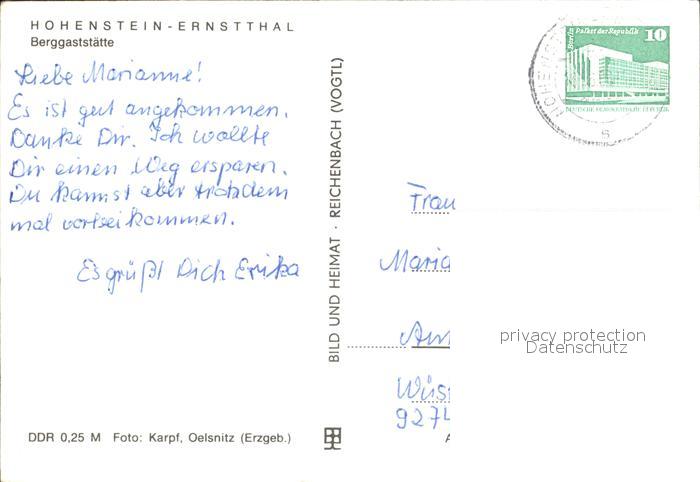 HOHENSTEIN-ERNSTTHAL
Berggaststätte
Liebe Marianne!
Es ist gut angekommen.
Danke Dir. Ich wollte
Dir einen Weg ersparen.
Du kannst aber trotzdem
mal vorbeikommen.
Es grüßt Dich Erika
DDR 0,25 M Foto: Karpf, Oelsnitz (Erzgeb.)
BILD UND HEIMAT · REICHENBACH (VOGTL)
Berlin Palast der Republik
10
DEUTSCHE DEMOKRATISCHE REPUBLIK
HOHENST
s
Frau
Maria
Am
Wüs
9274
privacy protection
Datenschutz